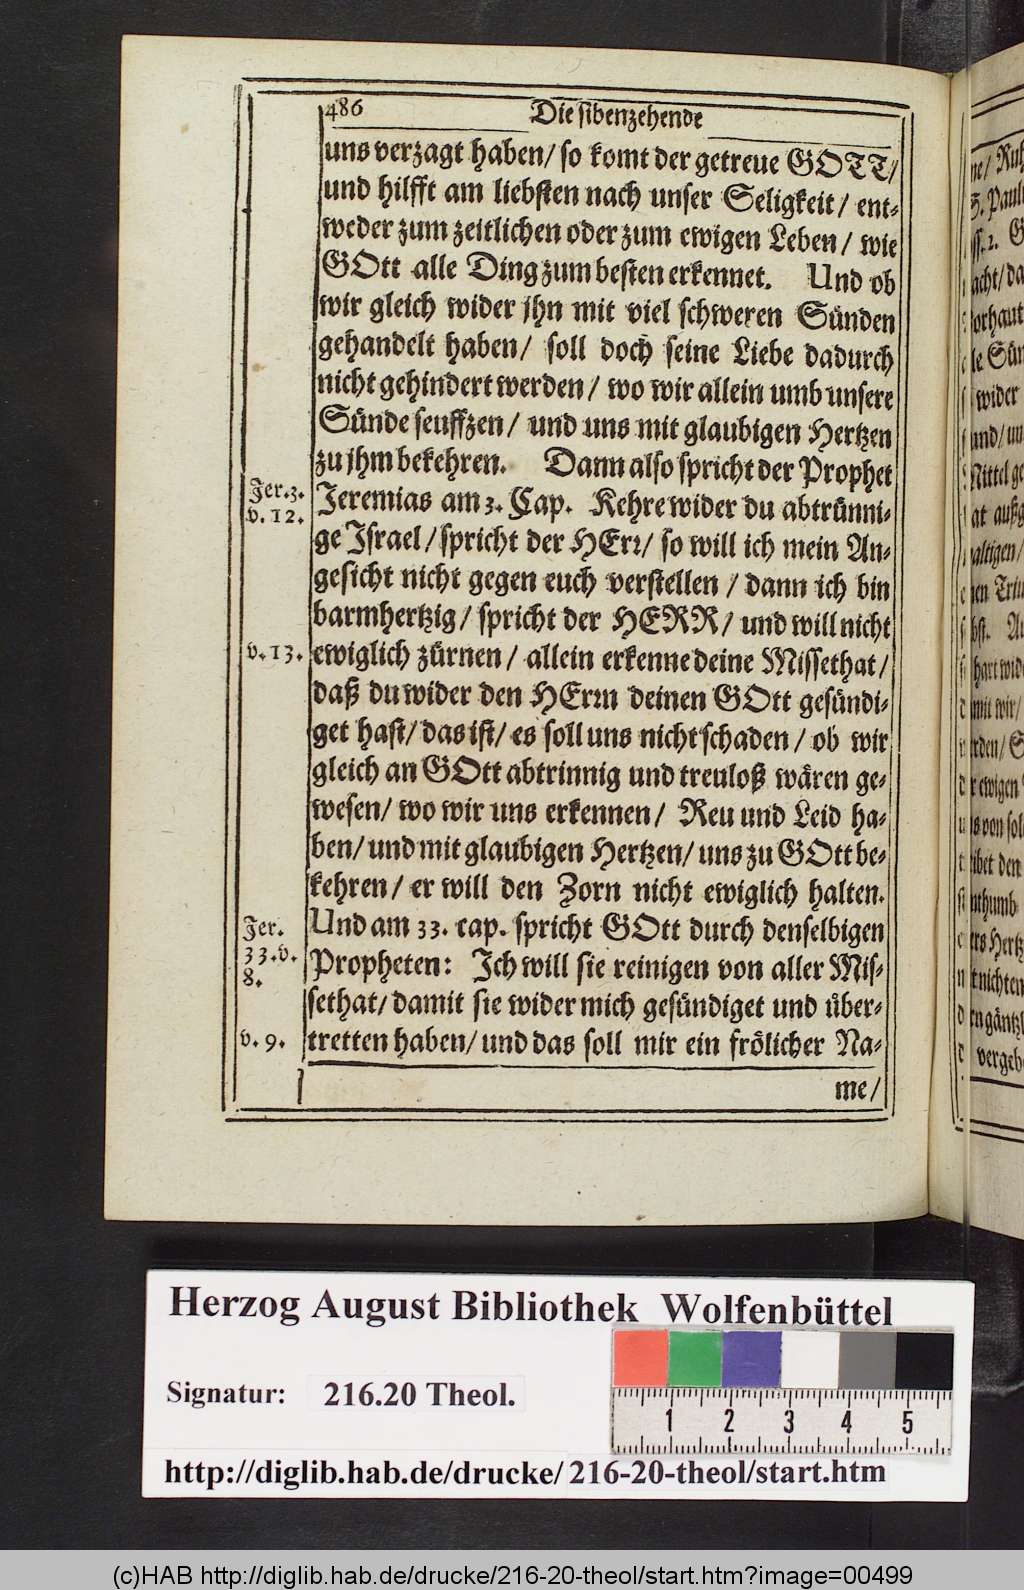 486
Die sibenzehende
uns verzagt haben/ so komt der getreue GOTT/
und hilfft am liebsten nach unser Seligkeit/ ent-
weder zum zeitlichen oder zum ewigen Leben/ wie
GOtt alle Ding zum besten erkennet. Und ob
wir gleich wider jhn mit viel schweren Sünden
gehandelt haben/ soll doch seine Liebe dadurch
nicht gehindert werden/ wo wir allein umb unsere
Sünde seuffzen/ und uns mit glaubigen Hertzen
zu jhm bekehren. Dann also spricht der Prophet
Jer. 3.
v. 12.
Jeremias am 3. Cap. Kehre wider du abtrünni-
ge Israel/ spricht der HErr/ so will ich mein An-
gesicht nicht gegen euch verstellen/ dann ich bin
barmhertzig/ spricht der HERR/ und will nicht
v. 13.
ewiglich zürnen/ allein erkenne deine Missethat/
daß du wider den HErrn deinen GOtt gesündi-
get hast/ das ist/ es soll uns nicht schaden/ ob wir
gleich an GOtt abtrinnig und treuloß wären ge-
wesen/ wo wir uns erkennen/ Reu und Leid ha-
ben/ und mit glaubigen Hertzen/ uns zu GOtt be-
kehren/ er will den Zorn nicht ewiglich halten.
Jer.
33. v.
8.
Und am 33. cap. spricht GOtt durch denselbigen
Propheten: Ich will sie reinigen von aller Mis-
sethat/ damit sie wider mich gesündiget und über-
v. 9.
tretten haben/ und das soll mir ein frölicher Na-
me/
Herzog August Bibliothek Wolfenbüttel
Signatur: 216.20 Theol.
1 2 3 4 5
http://diglib.hab.de/drucke/216-20-theol/start.htm
(c)HAB http://diglib.hab.de/drucke/216-20-theol/start.htm?image=00499